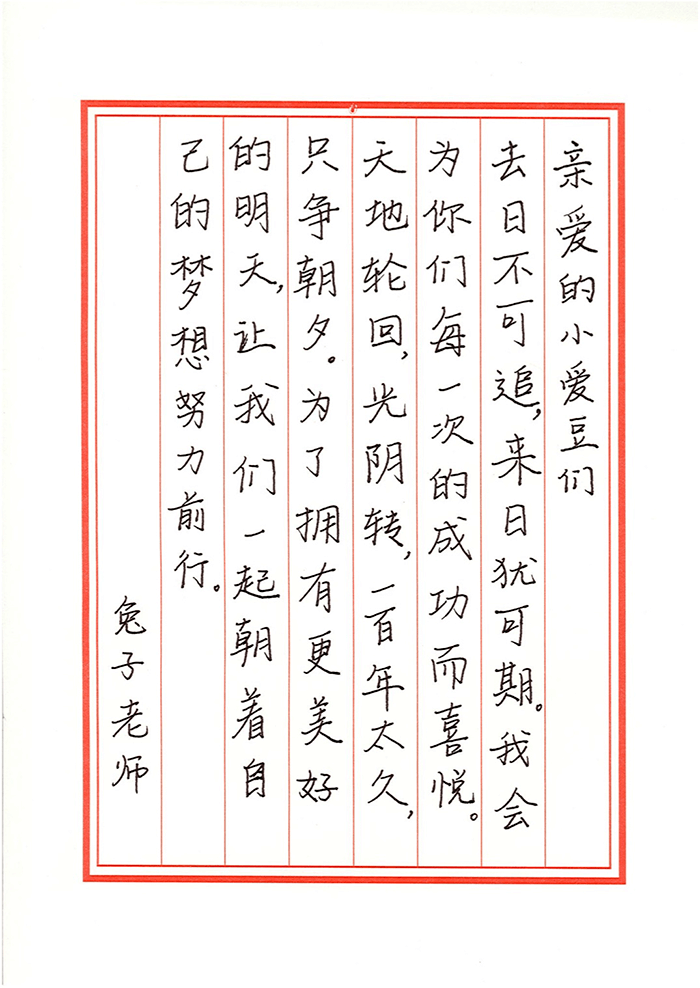 亲爱的小爱豆们
去日不可追,来日犹可期。我会
为你们每一次的成功而喜悦。
天地轮回,光阴转,一百年太久,
只争朝夕。为了拥有更美好
的明天,让我们一起朝着自
己的梦想努力前行。
兔子老师